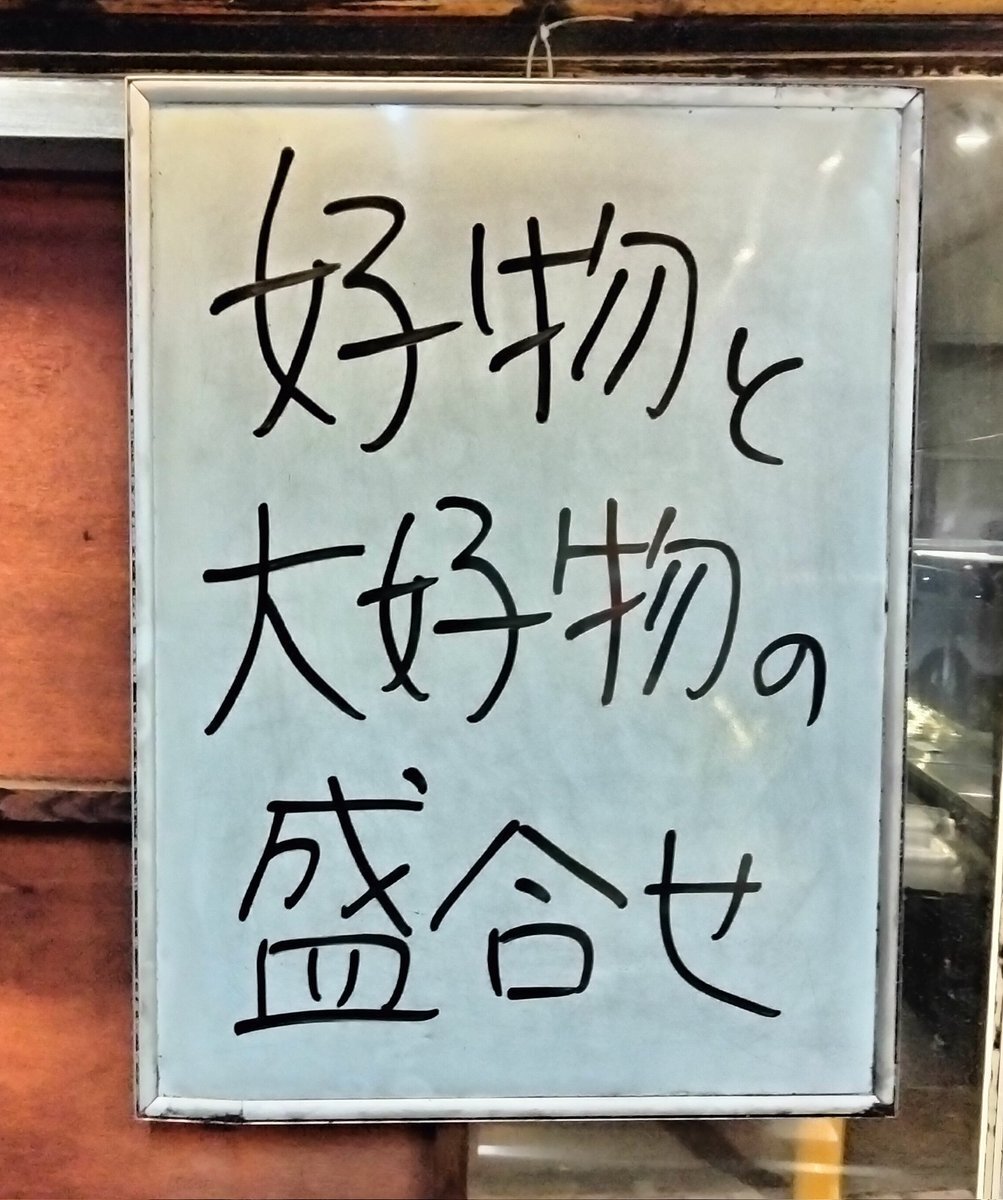 好物と
大好物の
盛合せ